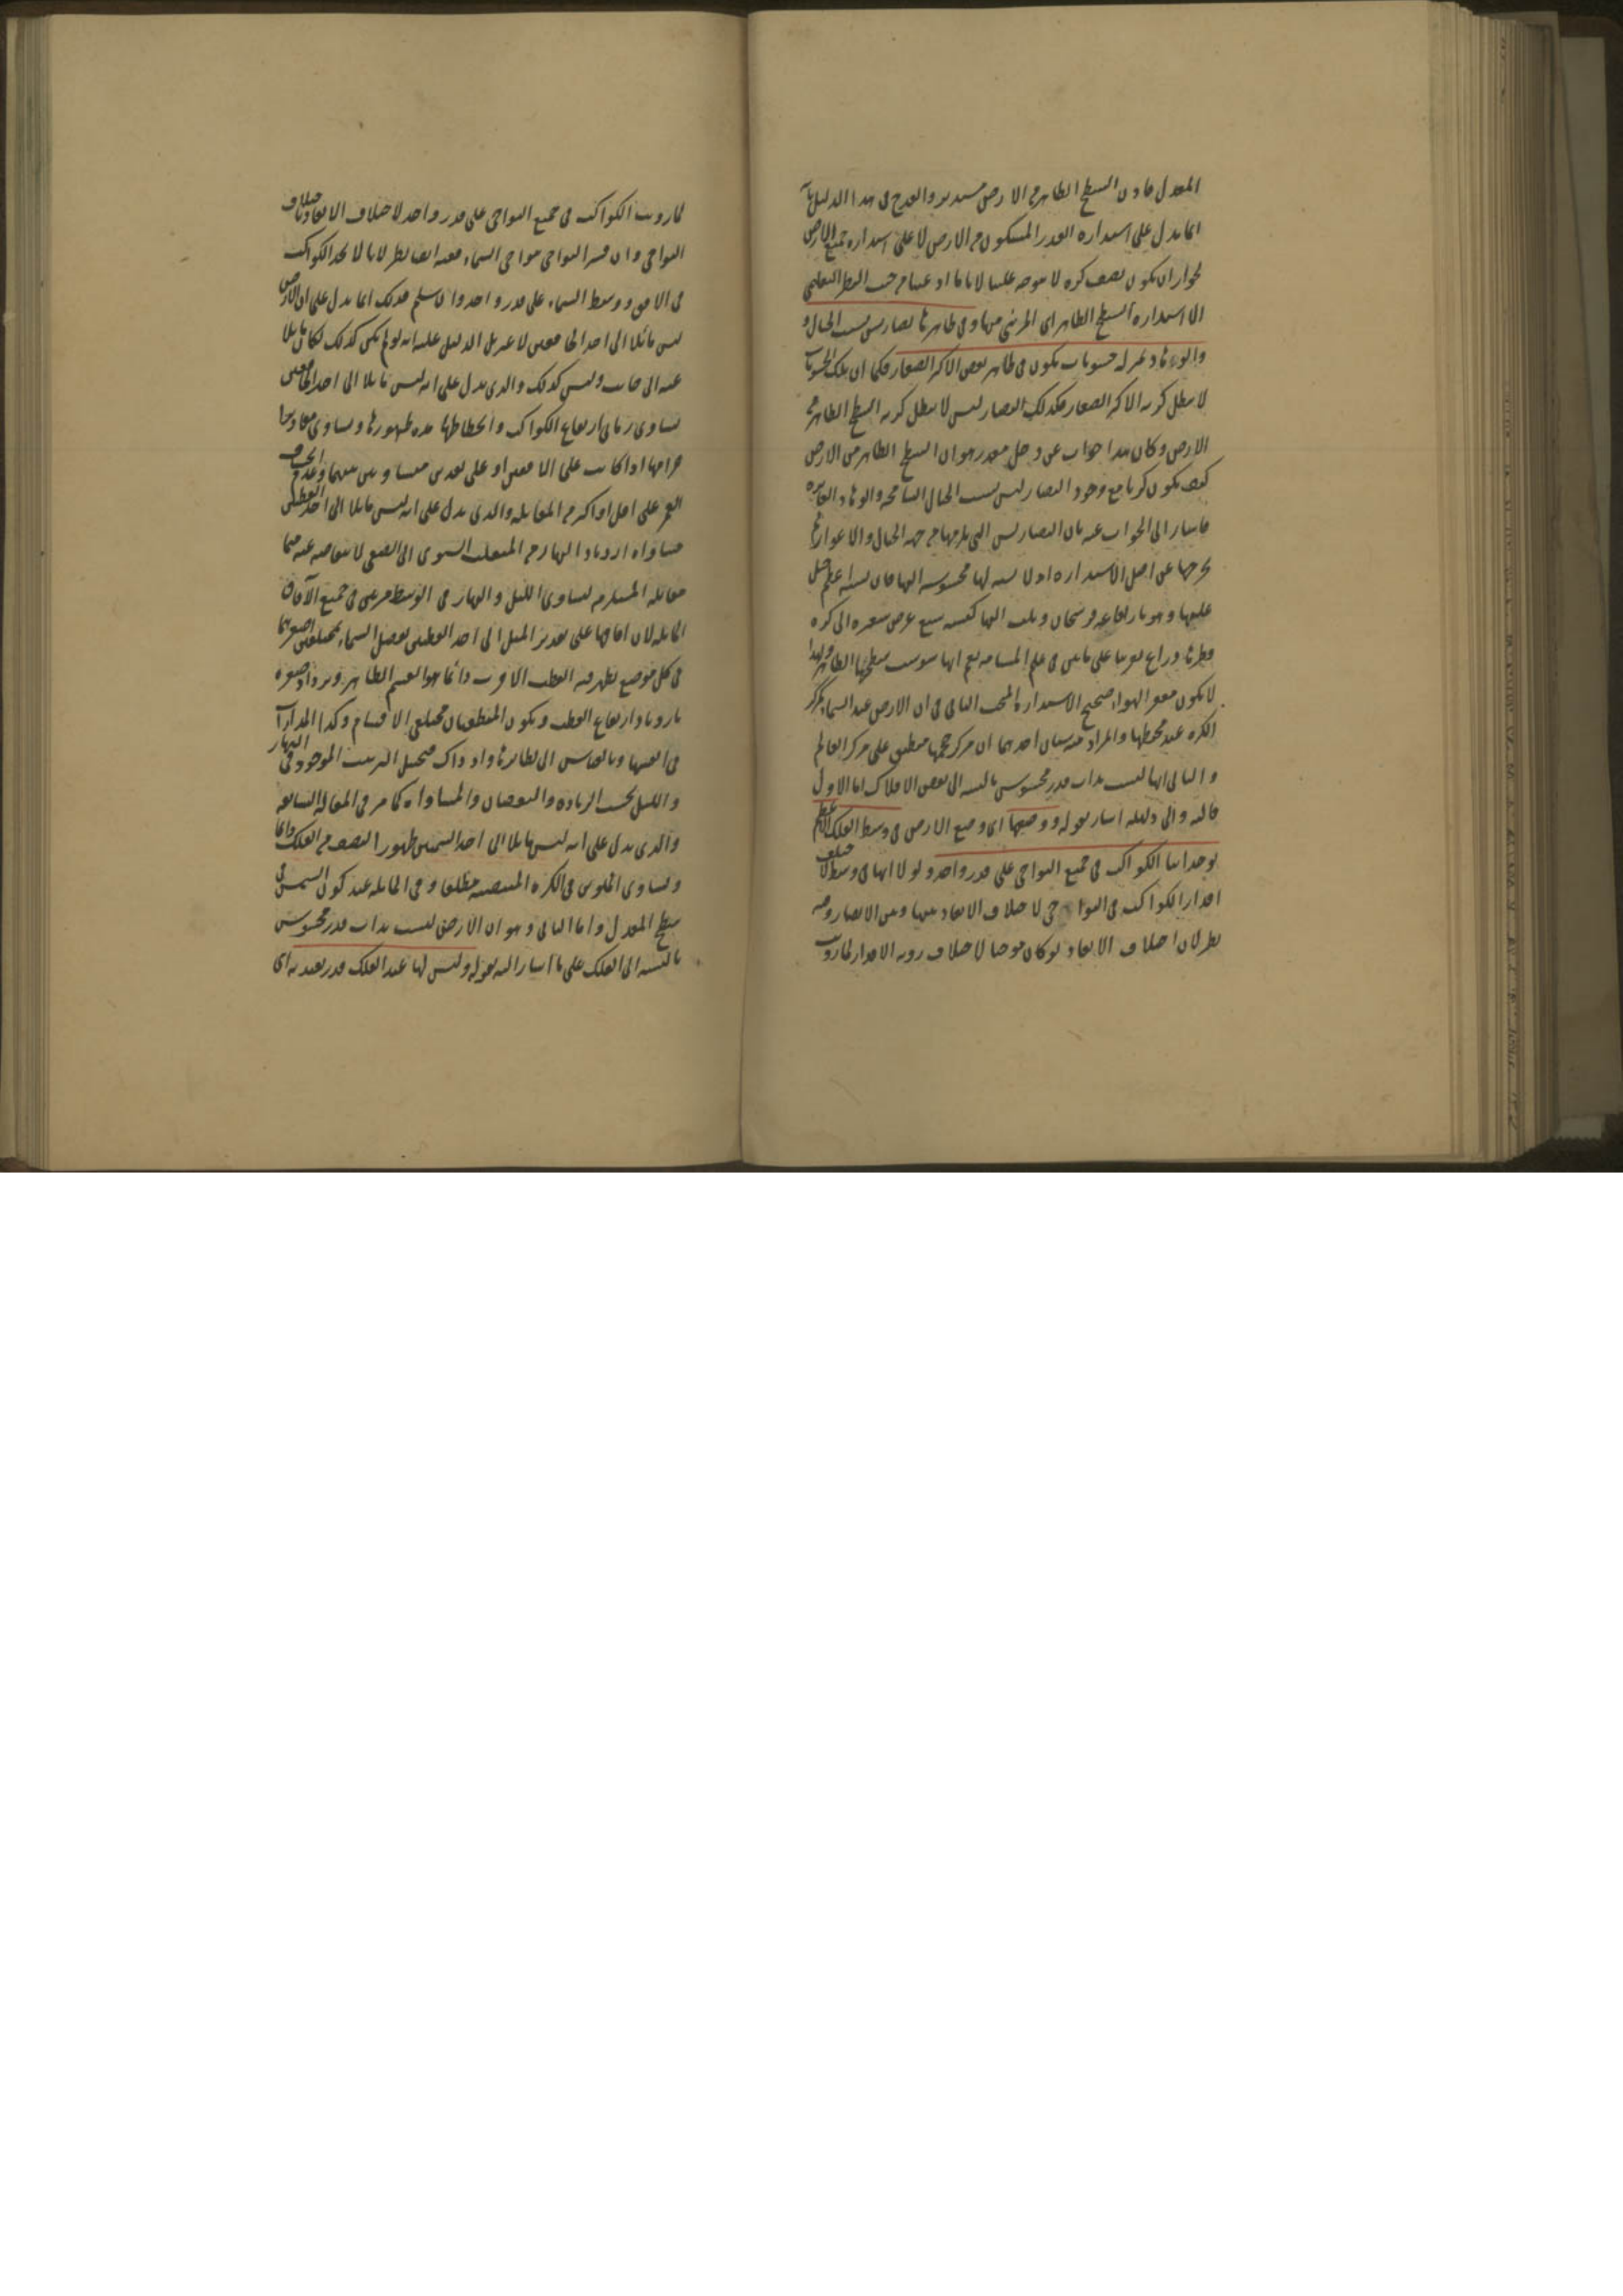 المعدل فاذن السطح الظاهر من الارض مستدير والقدح فى هذا الدليل بانه
انما يدل على استدارة القدر المسكون من الارض لا على استدارة جميع الارض
لجواز ان يكون نصف كرة لا يتوجه علينا لانا ما ادعينا من حيث النظر التعليمى
الا استدارة السطح الظاهر اى المرئى منها وفى ظاهرها تضاريس بسبب الجبال و
والوهاد بمنزلة خشونات يكون فى ظاهر بعض الاكر الصغار فكما ان تلك الخشونات
لا يبطل كرية الاكر الصغار فكذلك التضاريس لا يبطل كرية السطح الظاهر من
الارض وكان هذا جواب عن دخل مقدر هو ان السطح الظاهر من الارض
كيف يكون كريا مع وجود التضاريس بسبب الجبال الشامخة والوهاد الغايرة
فاشار الى الجواب عنه بان التضاريس التى يلزمها من جهة الجبال والاغوار لا
يخرجها عن اصل الاستدارة اذ لا نسبة لها محسوسة اليها فان نسبة اعظم جبل
عليها وهو ما ارتفاعه فرسخان وثلث اليها كنسبة سبع عرض شعيرة الى كرة
قطرها ذراع تقريبا على ما بين فى علم المساحة نعم انها شوشت سطحها الظاهر ولهذا
لا يكون مقعر الهواء صحيح الاستدارة المبحث الثانى فى ان الارض عند السماء كمركز
الكرة عند محيطها والمراد منه شيئان احدهما ان مركز حجمها منطبق على مركز العالم
والثانى انها ليست بذات قدر محسوس بالنسبة الى بعض الافلاك اما الاول
فاليه والى دليله اشار بقوله ووضعها اى وضع الارض فى وسط الفلك الاعظم
يوجد لنا الكواكب فى جميع النواحى على قدر واحد ولو لا انها فى وسط لاختلف
اقدار الكواكب فى النواحى لاختلاف الابعاد بينها وبين الابصار وفيه
نظر لان اختلاف الابعاد لو كان موجبا لاختلاف رؤية الاقدار لما رويت
لما رويت الكواكب فى جميع النواحى على قدر واحد لاختلاف الابعاد باختلاف
النواحى وان فسر النواحى بنواحى السماء ففيه ايضا نظر لانا لا نجد الكواكب
فى الافق ووسط السماء على قدر واحد وان سلم فذلك انما يدل على ان الارض
ليس مائلا الى احد الخافقين لا غير بل الدليل عليه انه لو لم يكن كذلك لكان مايلا
عنه الى جانب وليس كذلك والذى يدل على انه ليس مايلا الى احد الخافقين
تساوى زمانى ارتفاع الكواكب وانحطاطها مدة ظهورها وتساوى مقادير
اجرامها اذا كانت على الافقين او على بعدين متساويين منهما وعدم انخساف
القمر على اقل او اكثر من المقابلة والذى يدل على انه ليس مايلا الى احد القطبين
مساواة ازدياد النهار من المنقلب الشتوى الى الصيفى لانتقاصه عنه فيما
مقابله المستلزمة لتساوى الليل والنهار فى الوسط مرتين فى جميع الآفاق
المايلة لان آفاقها على تقدير الميل الى احد القطبين تفصل السماء بمختلفين اصغرهما
فى كل موضع يظهر فيه القطب الاقرب دائما هو القسم الظاهر ويزداد صغره
بازدياد ارتفاع القطب ويكون المنطقتان مختلفى الاقسام وكذا المدارات
فى انفسها وبالقياس الى نظايرها واذ ذاك يختل الترتيب الموجود فى النهار
والليل بحسب الزيادة والنقصان والمساواة كما مر فى المقالة السابعة
والذى يدل على انه ليس مايلا الى احد السمتين ظهور النصف من الفلك دائما
وتساوى الملوين فى الكرة المنتصبة مطلقا وفى المايلة عند كون الشمس فى
سطح المعدل واما الثانى وهو ان الارض ليست بذات قدر محسوس
بالنسبة الى الفلك على ما اشار اليه بقوله وليس لها عند الفلك قدر يعتد به اى